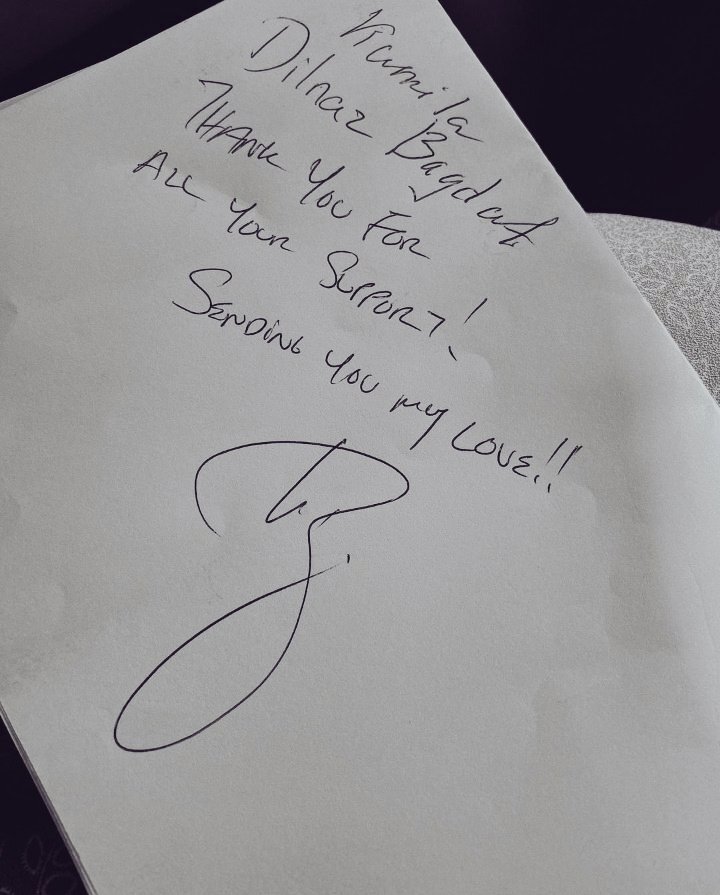 Kamila
Dilnaz Bagdat
THANK YOU FOR
ALL YOUR SUPPORT!
SENDING YOU my LOVE!!